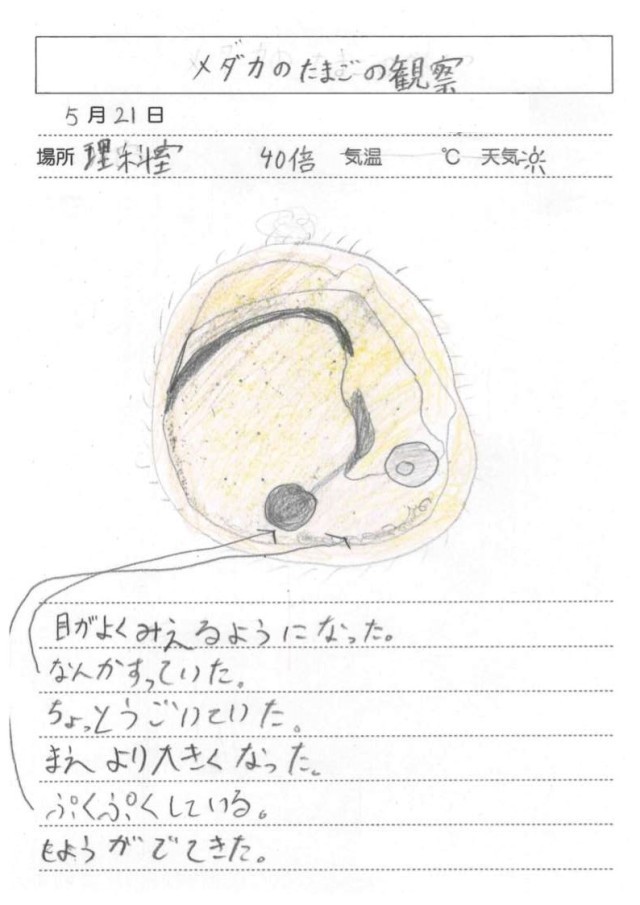 メダカのたまごの観察
5月21日
場所 理科室 40倍 気温 ℃ 天気
目がよくみえるようになった。
なんかすっていた。
ちょっとうごいていた。
まえより大きくなった。
ぷくぷくしている。
もようがでてきた。